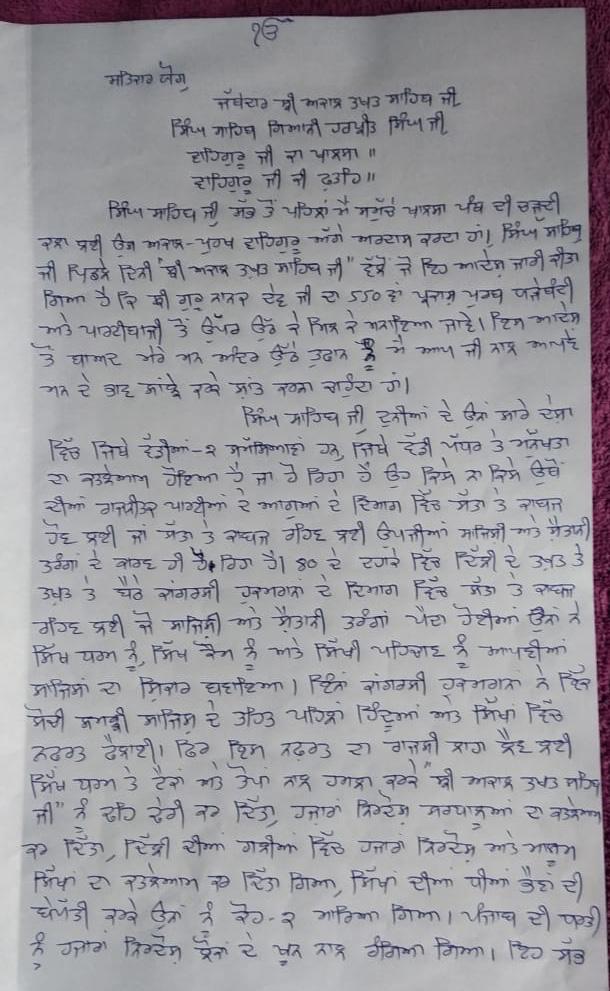 ੴ
ਸਤਿਕਾਰ ਯੋਗ
ਜੱਥੇਦਾਰ ਸ਼੍ਰੀ ਅਕਾਲ ਤਖਤ ਸਾਹਿਬ ਜੀ
ਸਿੰਘ ਸਾਹਿਬ ਗਿਆਨੀ ਹਰਪ੍ਰੀਤ ਸਿੰਘ ਜੀ
ਵਾਹਿਗੁਰੂ ਜੀ ਕਾ ਖਾਲਸਾ ॥
ਵਾਹਿਗੁਰੂ ਜੀ ਕੀ ਫ਼ਤਹਿ॥
ਸਿੰਘ ਸਾਹਿਬ ਜੀ ਸੱਭ ਤੋਂ ਪਹਿਲਾਂ ਮੈਂ ਸਮੁੱਚੇ ਖਾਲਸਾ ਪੰਥ ਦੀ ਚੜ੍ਹਦੀ
ਕਲਾ ਲਈ ਉਸ ਅਕਾਲ-ਪੁਰਖ ਵਾਹਿਗੁਰੂ ਅੱਗੇ ਅਰਦਾਸ ਕਰਦਾ ਹਾਂ। ਸਿੰਘ ਸਾਹਿਬ
ਜੀ ਪਿਛਲੇ ਦਿਨੀਂ "ਸ਼੍ਰੀ ਅਕਾਲ ਤਖਤ ਸਾਹਿਬ ਜੀ" ਵੱਲੋਂ ਜੋ ਇਹ ਆਦੇਸ਼ ਜਾਰੀ ਕੀਤਾ
ਗਿਆ ਹੈ ਕਿ ਸ਼੍ਰੀ ਗੁਰੂ ਨਾਨਕ ਦੇਵ ਜੀ ਦਾ 550 ਵਾਂ ਪ੍ਰਕਾਸ਼ ਪੁਰਬ ਧੜੇਬੰਦੀ
ਅਤੇ ਪਾਰਟੀਬਾਜੀ ਤੋਂ ਉੱਪਰ ਉੱਠ ਕੇ ਮਿਲ ਕੇ ਮਨਾਇਆ ਜਾਵੇ। ਇਸ ਆਦੇਸ਼
ਤੋਂ ਬਾਅਦ ਮੇਰੇ ਮਨ ਅੰਦਰ ਉੱਠੇ ਤੂਫਾਨ ਨੂੰ ਮੈਂ ਆਪ ਜੀ ਨਾਲ ਆਪਣੇ
ਮਨ ਦੇ ਭਾਵ ਸਾਂਝੇ ਕਰਕੇ ਸ਼ਾਂਤ ਕਰਨਾ ਚਾਹੁੰਦਾ ਹਾਂ।
ਸਿੰਘ ਸਾਹਿਬ ਜੀ ਦੁਨੀਆਂ ਦੇ ਉਨਾਂ ਸਾਰੇ ਦੇਸ਼ਾਂ
ਵਿੱਚ ਜਿਥੇ ਵੱਡੀਆਂ-੨ ਸਮੱਸਿਆਵਾਂ ਹਨ, ਜਿਥੇ ਵੱਡੀ ਪੱਧਰ ਤੇ ਮਨੁੱਖਤਾ
ਦਾ ਕਤਲੇਆਮ ਹੋਇਆ ਹੈ ਜਾਂ ਹੋ ਰਿਹਾ ਹੈ ਉਹ ਕਿਸੇ ਨਾ ਕਿਸੇ ਉਥੋਂ
ਦੀਆਂ ਰਾਜਨੀਤਕ ਪਾਰਟੀਆਂ ਦੇ ਆਗੂਆਂ ਦੇ ਦਿਮਾਗ ਵਿੱਚ ਸੱਤਾ ਤੇ ਕਾਬਜ
ਹੋਣ ਲਈ ਜਾਂ ਸੱਤਾ ਤੇ ਕਾਬਜ ਰਹਿਣ ਲਈ ਉਪਜੀਆਂ ਸਾਜਿਸੀ ਅਤੇ ਸ਼ੈਤਾਨੀ
ਤਰੰਗਾਂ ਦੇ ਕਾਰਣ ਹੀ ਹੋ ਰਿਹਾ ਹੈ। 80 ਦੇ ਦਹਾਕੇ ਵਿੱਚ ਦਿੱਲੀ ਦੇ ਤਖਤ ਤੇ
ਤਖਤ ਤੇ ਬੈਠੇ ਕਾਂਗਰਸੀ ਹੁਕਮਰਾਨਾਂ ਦੇ ਦਿਮਾਗ ਵਿੱਚ ਸੱਤਾ ਤੇ ਕਾਬਜ
ਰਹਿਣ ਲਈ ਜੋ ਸਾਜਿਸੀ ਅਤੇ ਸ਼ੈਤਾਨੀ ਤਰੰਗਾਂ ਪੈਦਾ ਹੋਈਆਂ ਉਨਾਂ ਨੇ
ਸਿੱਖ ਧਰਮ ਨੂੰ, ਸਿੱਖ ਕੌਮ ਨੂੰ ਅਤੇ ਸਿੱਖੀ ਪਹਿਚਾਣ ਨੂੰ ਆਪਣੀਆਂ
ਸਾਜਿਸਾਂ ਦਾ ਸ਼ਿਕਾਰ ਬਣਾਇਆ। ਇੰਨਾਂ ਕਾਂਗਰਸੀ ਹੁਕਮਰਾਨਾਂ ਨੇ ਇੱਕ
ਸੋਚੀ ਸਮਝੀ ਸਾਜਿਸ਼ ਦੇ ਤਹਿਤ ਪਹਿਲਾਂ ਹਿੰਦੂਆਂ ਅਤੇ ਸਿੱਖਾਂ ਵਿੱਚ
ਨਫ਼ਰਤ ਫੈਲਾਈ। ਫਿਰ ਇਸ ਨਫ਼ਰਤ ਦਾ ਰਾਜਸੀ ਲਾਹਾ ਲੈਣ ਲਈ
ਸਿੱਖ ਧਰਮ ਤੇ ਟੈਂਕਾਂ ਅਤੇ ਤੋਪਾਂ ਨਾਲ ਹਮਲਾ ਕਰਕੇ "ਸ਼੍ਰੀ ਅਕਾਲ ਤਖਤ ਸਾਹਿਬ
ਜੀ" ਨੂੰ ਢਹਿ ਢੇਰੀ ਕਰ ਦਿੱਤਾ, ਹਜਾਰਾਂ ਨਿਰਦੋਸ਼ ਸ਼ਰਧਾਲੂਆਂ ਦਾ ਕਤਲੇਆਮ
ਕਰ ਦਿੱਤਾ, ਦਿੱਲੀ ਦੀਆਂ ਗਲੀਆਂ ਵਿੱਚ ਹਜਾਰਾਂ ਨਿਰਦੋਸ਼ ਅਤੇ ਮਾਸੂਮ
ਸਿੱਖਾਂ ਦਾ ਕਤਲੇਆਮ ਕਰ ਦਿੱਤਾ ਗਿਆ, ਸਿੱਖਾਂ ਦੀਆਂ ਧੀਆਂ ਭੈਣਾਂ ਦੀ
ਬੇਪੱਤੀ ਕਰਕੇ ਉਨਾਂ ਨੂੰ ਕੋਹ-੨ ਮਾਰਿਆ ਗਿਆ। ਪੰਜਾਬ ਦੀ ਧਰਤੀ
ਨੂੰ ਹਜਾਰਾਂ ਨਿਰਦੋਸ਼ ਲੋਕਾਂ ਦੇ ਖੂਨ ਨਾਲ ਰੰਗਿਆ ਗਿਆ। ਇਹ ਸੱਭ